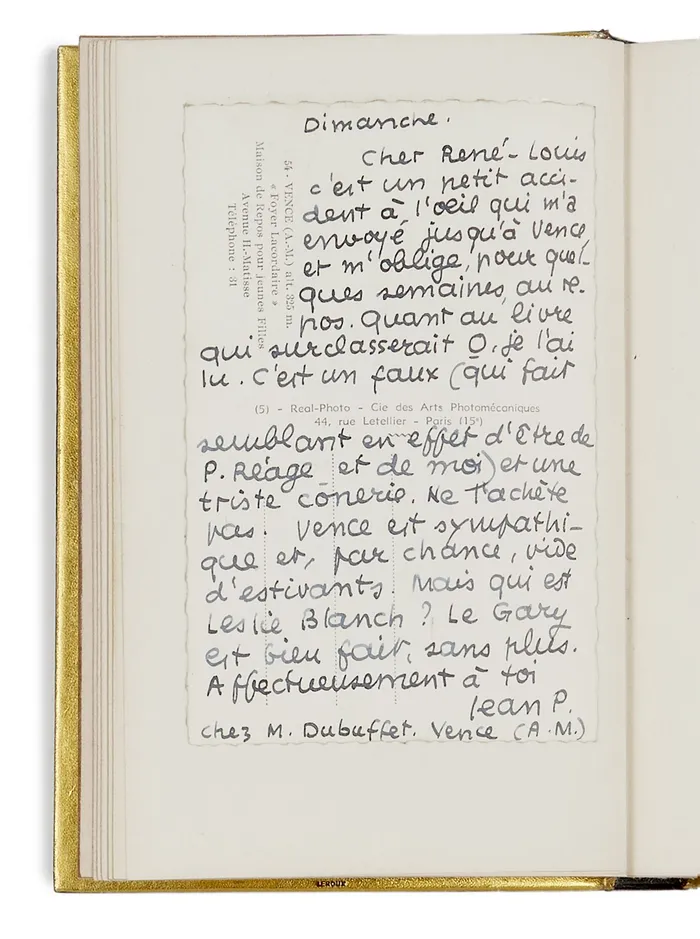 Dimanche.
Cher René-Louis
c'est un petit acci-
dent à l'oeil qui m'a
envoyé jusqu'à Vence,
et m'oblige, pour quel-
ques semaines, au re-
pos. Quant au livre
qui surclasserait O, je l'ai
lu. C'est un faux (qui fait
semblant en effet d'être de
P. Réage et de moi) et une
triste cônerie. Ne l'achète
pas. Vence est sympathi-
que et, par chance, vide
d'estivants. Mais qui est
Leslie Blanch ? Le Gary
est bien fait, sans plus.
Affectueusement à toi
Jean P.
chez M. Dubuffet. Vence (A.M.)
54 - VENCE (A.-M.) alt. 325 m.
« Foyer Lacordaire »
Maison de Repos pour Jeunes Filles
Avenue H.-Matisse
Téléphone : 31
(5) - Real-Photo - Cie des Arts Photomécaniques
44, rue Letellier - Paris (15e)
LEROUX